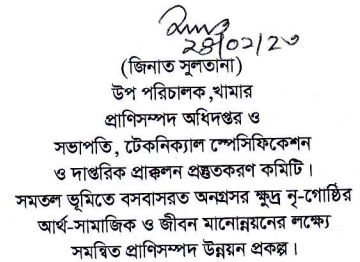 ২৪/০২/২০
(জিনাত সুলতানা)
উপ পরিচালক,খামার
প্রাণিসম্পদ অধিদপ্তর ও
সভাপতি, টেকনিক্যাল স্পেসিফিকেশন
ও দাপ্তরিক প্রাক্কলন প্রস্তুতকরণ কমিটি।
সমতল ভূমিতে বসবাসরত অনগ্রসর ক্ষুদ্র নৃ-গোষ্ঠির
আর্থ-সামাজিক ও জীবন মানোন্নয়নের লক্ষ্যে
সমন্বিত প্রাণিসম্পদ উন্নয়ন প্রকল্প।